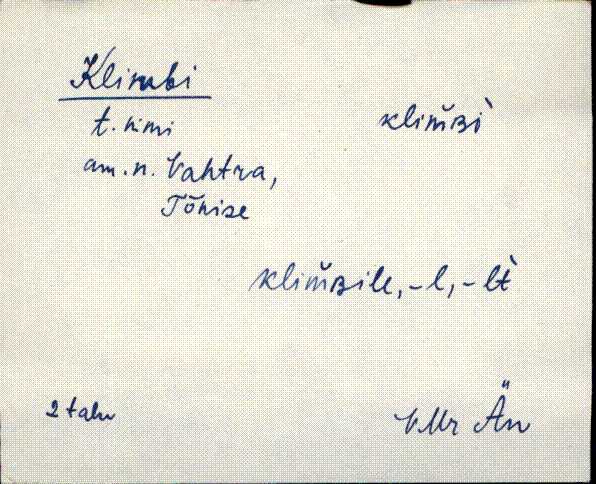 Klimbi
t. nimi
klim̆ʙì
am. n. Vahtra,
Tõnise
klim̆ʙile, -l, -lt̀
2 talu
VMr Än